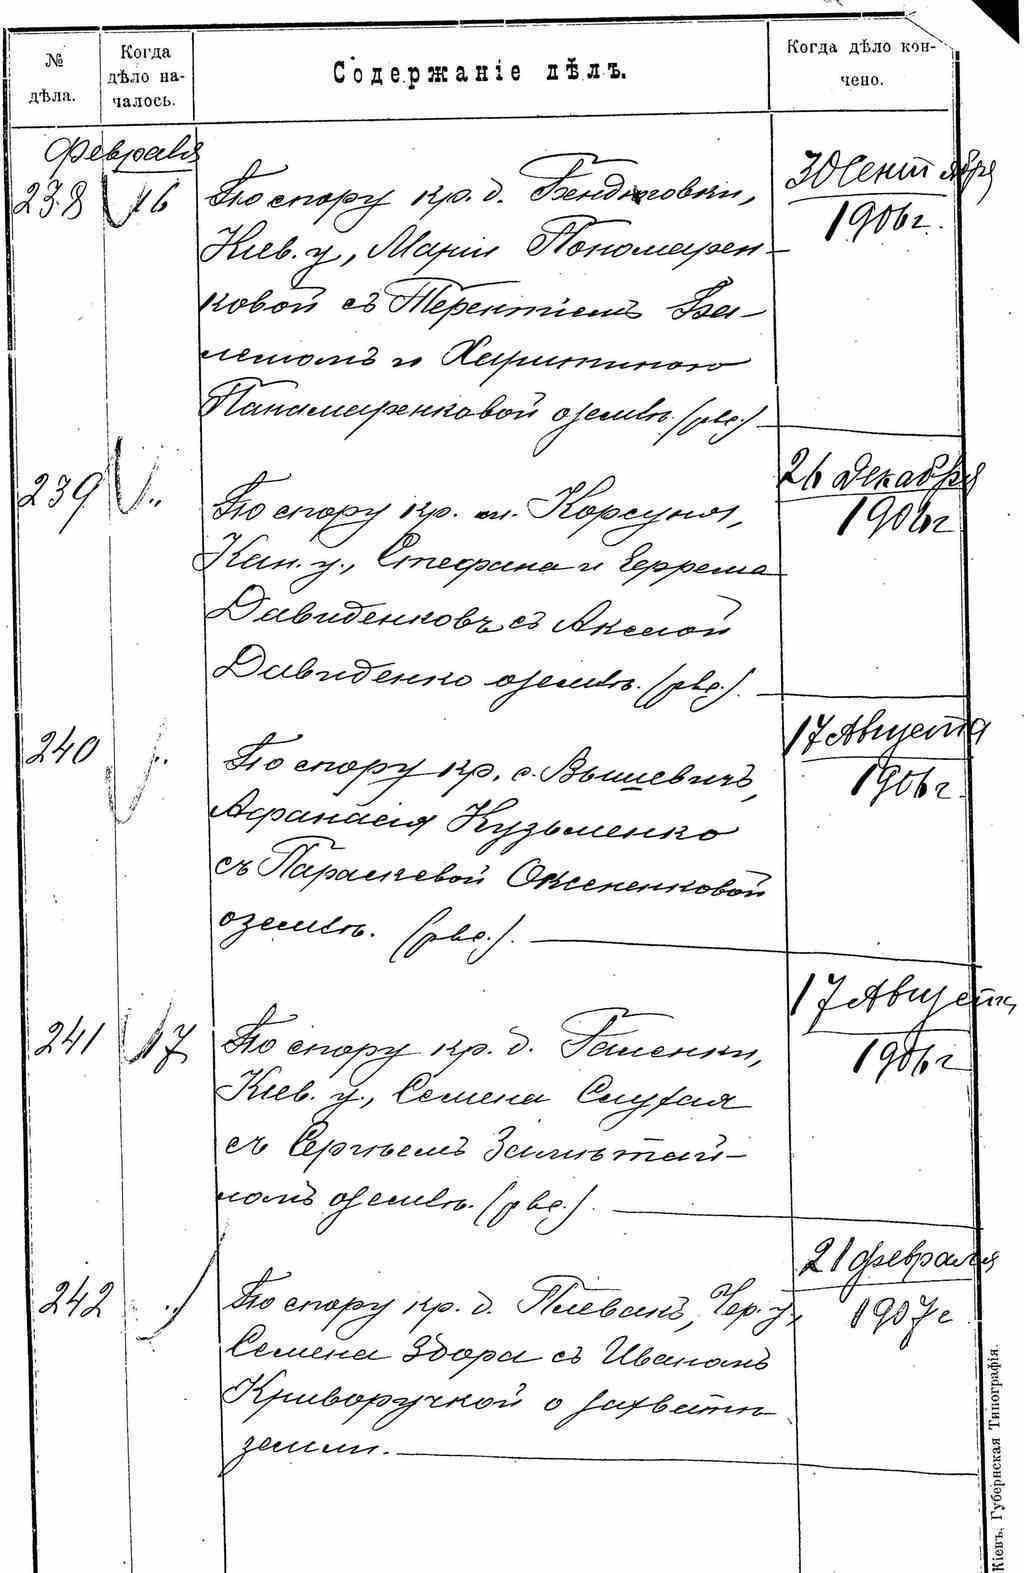 № дѣла.
Когда дѣло началось.
Содержаніе дѣлъ.
Когда дѣло кончено.
Февраля
238 16 По спору кр. д. Бендюговки,
Кіев. у., Маріи Пономарен-
ковой съ Терентіемъ
и Харитиною
Панамаренковой о землѣ. (рвс.)
30 Сентября
1906 г.
239 " По спору кр. м. Корсуня,
Кан. у., Стефана и Еррема
Давиденковъ съ
Давиденко о землѣ. (рвс.).
26 Декабря
1906 г
240 " По спору кр. с. Вышевичъ,
Афанасія Кузьменко
съ Параскевой Оксененковой
о землѣ. (рвс.).
17 Августа
1906 г.
241 17 По спору кр. д. Гаменки,
Кіев. у., Семена Слухая
съ Сергѣемъ Замѣтай-
ломъ о землѣ. (рвс.).
17 Августа
1906 г
242 " По спору кр. д. Плевакъ, Чер. у.,
Семена Здора съ Иваномъ
Криворучкой о захватѣ
земли.
21 февраля
1907 г
Кіевъ. Губернская Типографія.